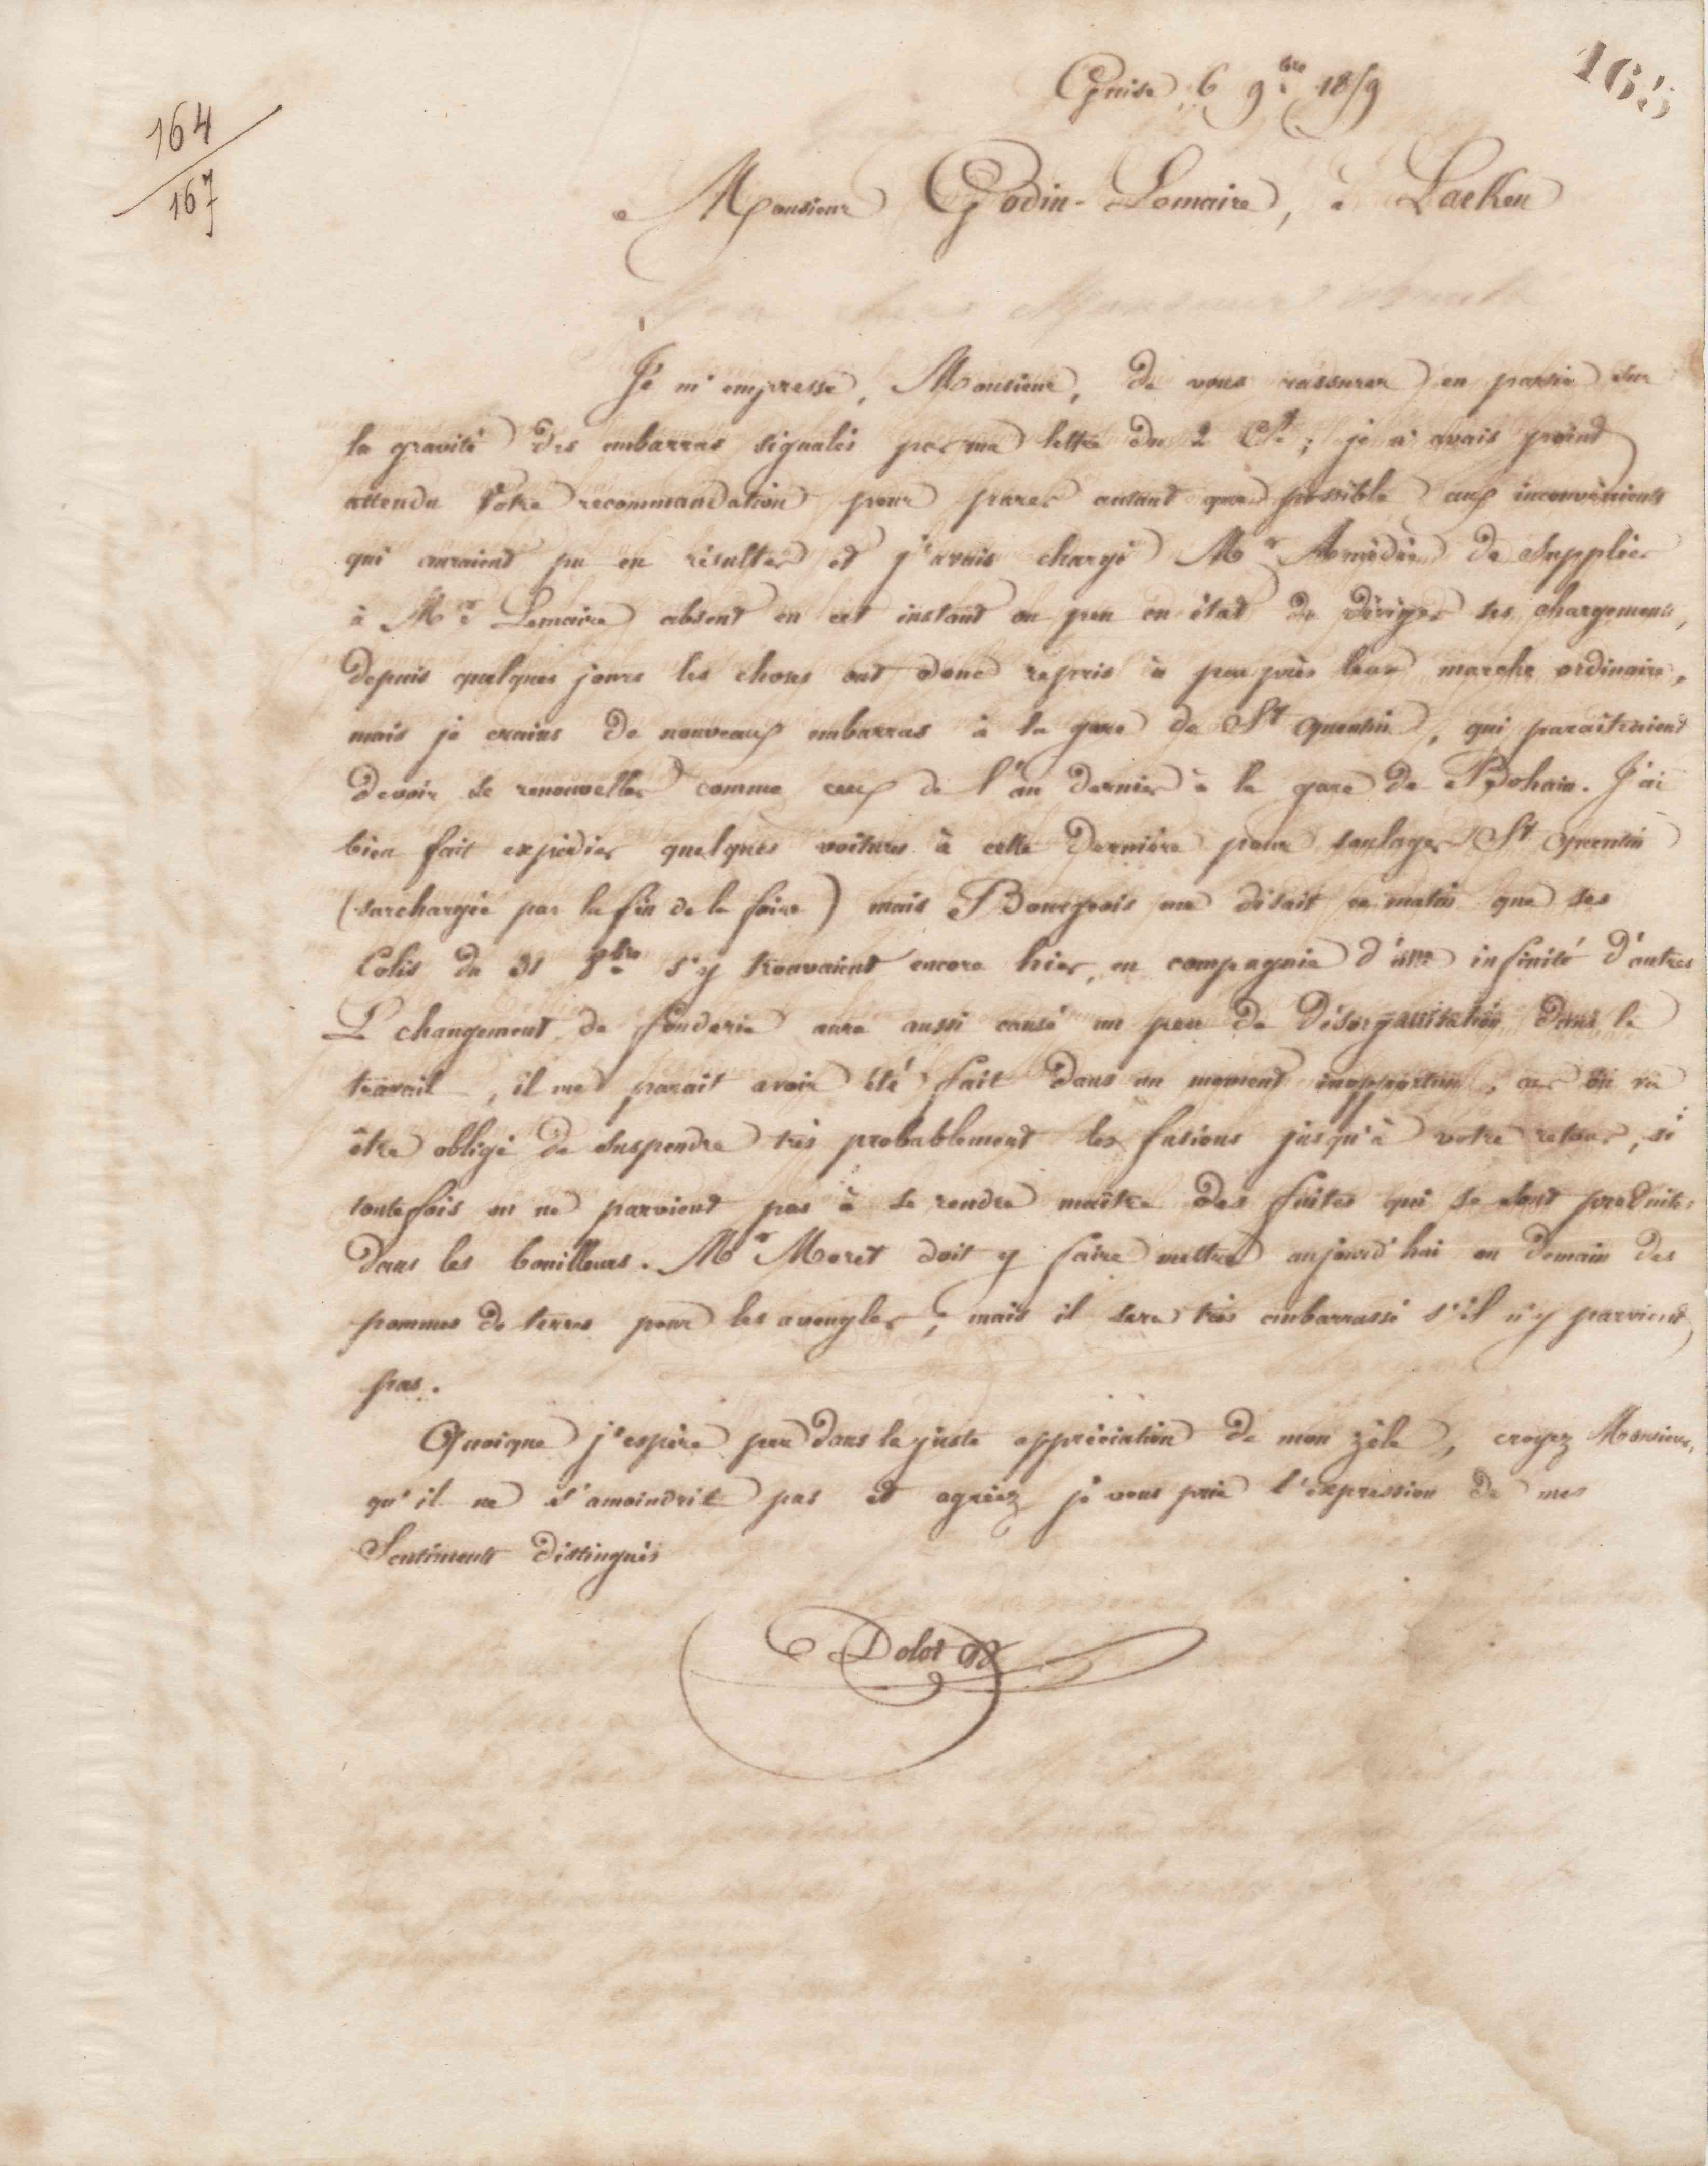 165
164
167
Guise, 6 9bre 1859
Monsieur Godin-Lemaire, à Laeken
Je m'empresse, Monsieur, de vous rassurer en partie sur
la gravité des embarras signalés par ma lettre du 2 Ct; je n'avais point
attendu votre recommandation pour parer autant que possible aux inconvénients
qui auraient pu en résulter et j'avais chargé Mr Amédée de suppléer
à Mr Lemaire absent en cet instant ou peu en état de diriger ses chargements,
depuis quelques jours les choses ont donc repris à peu près leur marche ordinaire,
mais je crains de nouveaux embarras à la gare de St Quentin, qui paraîtraient
devoir se renouveller comme ceux de l'an dernier à la gare de Bohain. J'ai
bien fait expédier quelques voitures à cette dernière pour soulager St Quentin
(surchargée par la fin de la foire) mais Bourgeois me disait ce matin que ses
Colis du 31 8bre s'y trouvaient encore hier, en compagnie d'une infinité d'autres
L changement de fonderie aura aussi causé un peu de désorganisation dans le
travail, il me parait avoir été fait dans un moment inopportun, car on va
être obligé de suspendre très probablement les fusions jusqu'à votre retour, si
toutefois on ne parvient pas à se rendre maître des fuites qui se sont produites
dans les bouilleurs. Mr Moret doit y faire mettre aujourd'hui ou demain des
pommes de terres pour les aveugler; mais il sera très embarrassé s'il n'y parvient
pas.
Quoique j'espère peu dans la juste appréciation de mon zèle, croyez Monsieur,
qu'il ne s'amoindrit pas et agréez je vous prie l'expression de mes
Sentiments distingués
Dolot